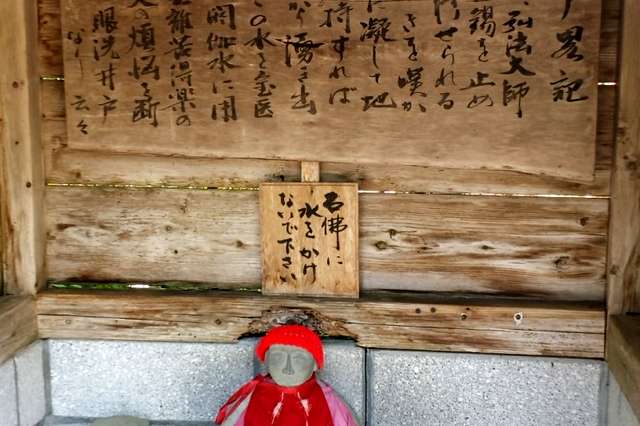 戸畧記
弘法大師
錫を止め
行せられる
きを嘆か
に凝して地
持すれば
から湧き出
この水を宝医
閼伽水に用
難苦得楽の
の煩悩を断
眼洗井戸
なり云々
石佛に
水をかけ
ないで下さい